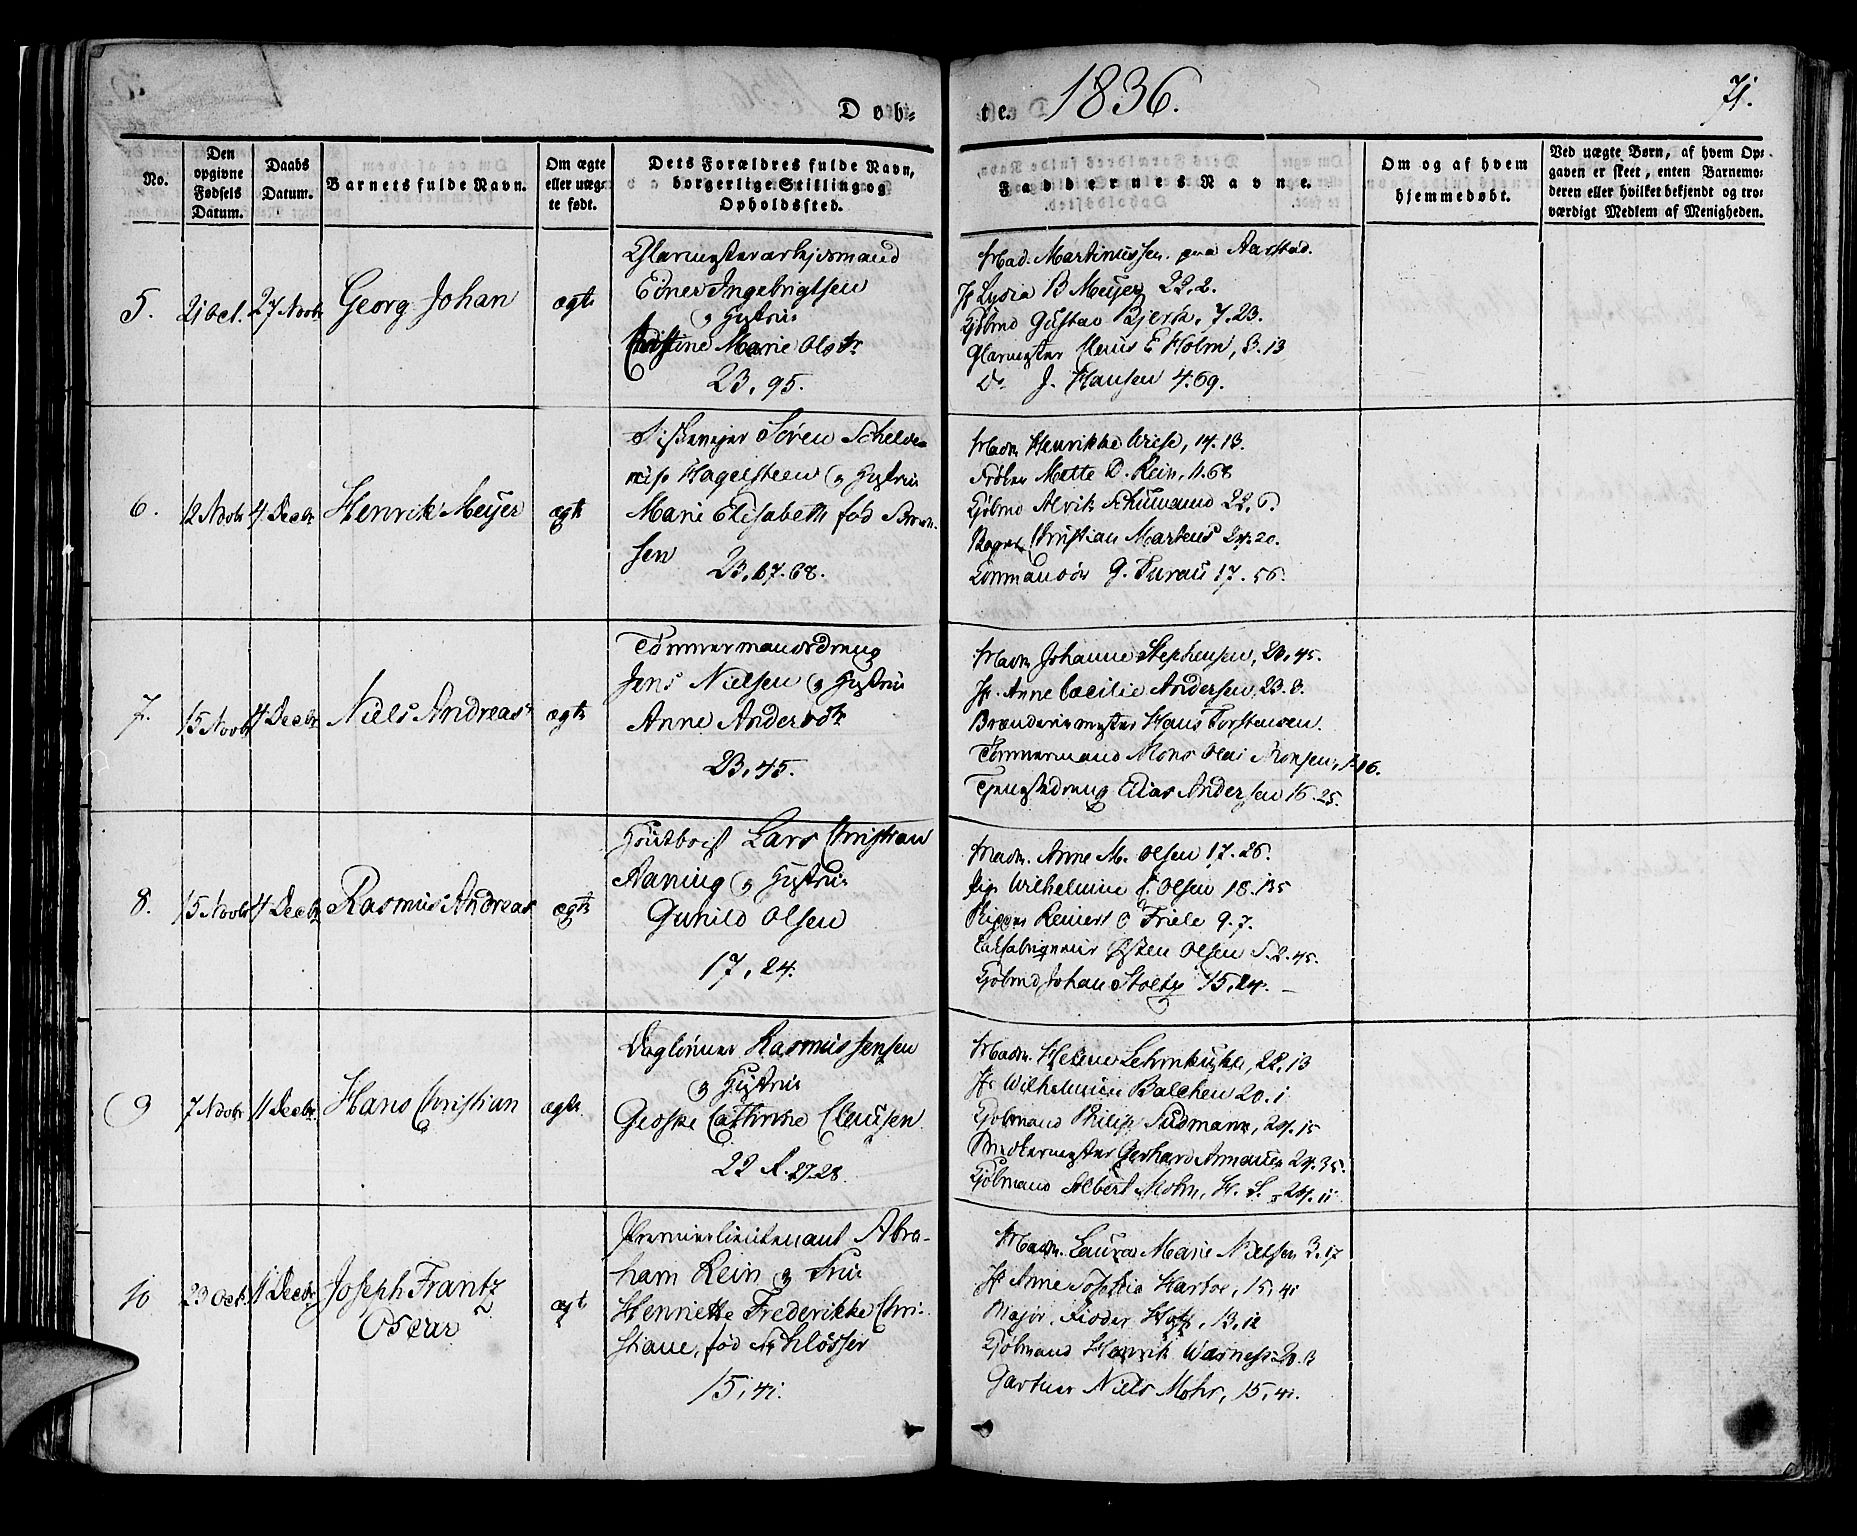 Døb-
te. 1836. 71.
No.
Den opgivne Fødsels Datum.
Daabs Datum.
Barnets fulde Navn.
Om ægte eller uægte født.
Dets Forældres fulde Navn, borgerlige Stilling og Opholdssted.
Faddernes Navne.
Om og af hvem hjemmedøbt.
Ved uægte Børn, af hvem Opgaven er skeet, enten Barnemoderen eller hvilket bekjendt og troværdigt Medlem af Menigheden.
5. 21 Oct. 27 Novbr Georg Johan ægte
Ingebrigtsen
& Hustrue
Christine Marie Olsdtr
23, 95.
Mad. Martinussen paa Aarstad.
Jf Lydia B Meyer 22, 2.
Kjøbmd Gustav Bjerk, 7.23.
Glarmester Claus E Holm, 8.13
Do J. Hansen 4.69.
6. 12 Novbr 4 Decbr Henrik Meyer ægte
Søren
Hagelsteen & Hustrue
Marie Elisabeth fød
sen 23, 67.68.
Madm Henrikke Wiese, 14.13.
Frøken Mette D. Rein, 11.68
Kjøbmd Alvik Schumand 22, 6
Christian Martens 24.20.
G. Turau 17.56.
7. 15 Novbr 4 Decbr Niels Andreas ægte
Tømmermandsdreng
Jens Nielsen & Hustrue
Anne Andersdtr
23, 45.
Madm Johanne Stephensen, 23, 45.
Jf. Anne Cæcilie Andersen, 23.8.
Brænderiemester Hans Torstensen.
Tømmermand Mons Olai Monsen,
Tjenestedreng Elias Andersen 16.25.
8. 15 Novbr 4 Decbr Rasmus Andreas ægte
Houtboist Lars Christian
Aaning & Hustrue
Gunild Olsen
17, 24.
Madm. Anne M. Olsen 17.26.
Wilhelmine Olsen 18.135
Reinert Friele 9.7.
Østen Olsen S.2.45.
Kjøbmd Johan Stoltz 15, 24.
9 7 Novbr 11 Decbr. Hans Christian ægte.
Dagleiner Rasmus Jensen
& Hustrue
Geske Cathrine Clausen
22 R. 27.28.
Madm. Helene Lehmkuhl, 22, 13
Jf Wilhelmine Balchen 20.1
Kjøbmand Philip Sudmann, 24.15
Snedkermester Gerhard Armauer 24.35.
Kjøbmand Albert Mohn, 24.11
10 23 Oct. 11 Decbr Joseph Frantz
Oscar ægte
Premierlieutenant Abra-
ham Rein & Frue
Henriette Frederikke Chri-
stiane, fød Schlösser
15, 41.
Madm. Laura Marie Nielsen 3.17
Jf Anne Sophia 15, 41
Major 13, 12
Kjøbmand Henrik Warness 20.13
Gartner Niels Mohr, 15, 41.